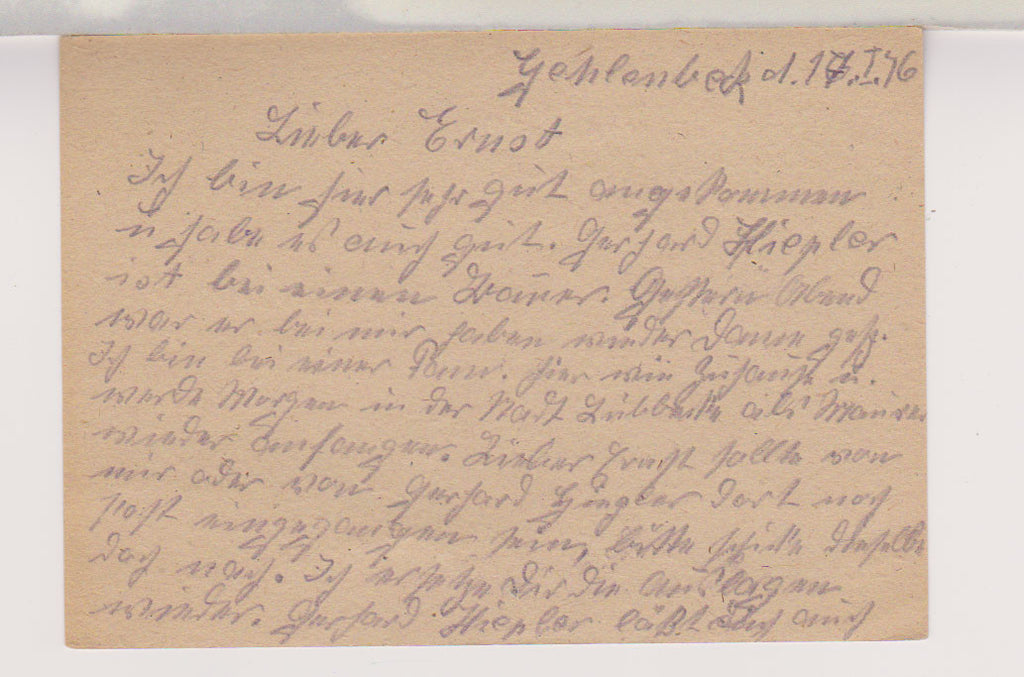 Gehlenbeck d. 17.I.46
Lieber Ernst
Ich bin hier sehr gut angekommen
u habe es auch gut. Gerhard Hiepler
ist bei einen Bauer. Gestern Abend
war er bei mir haben wieder
Ich bin bei einer Fam. hier wie Zuhause u.
werde Morgen in der Stadt Lübbecke als Maurer
wieder anfangen. Lieber Ernst sollte von
mir oder von Gerhard Hiepler dort noch
Post eingegangen sein, bitte schicke dieselbe
doch nach. Ich ersetze Dir die Auslagen
wieder. Gerhard Hiepler läßt Dich auch